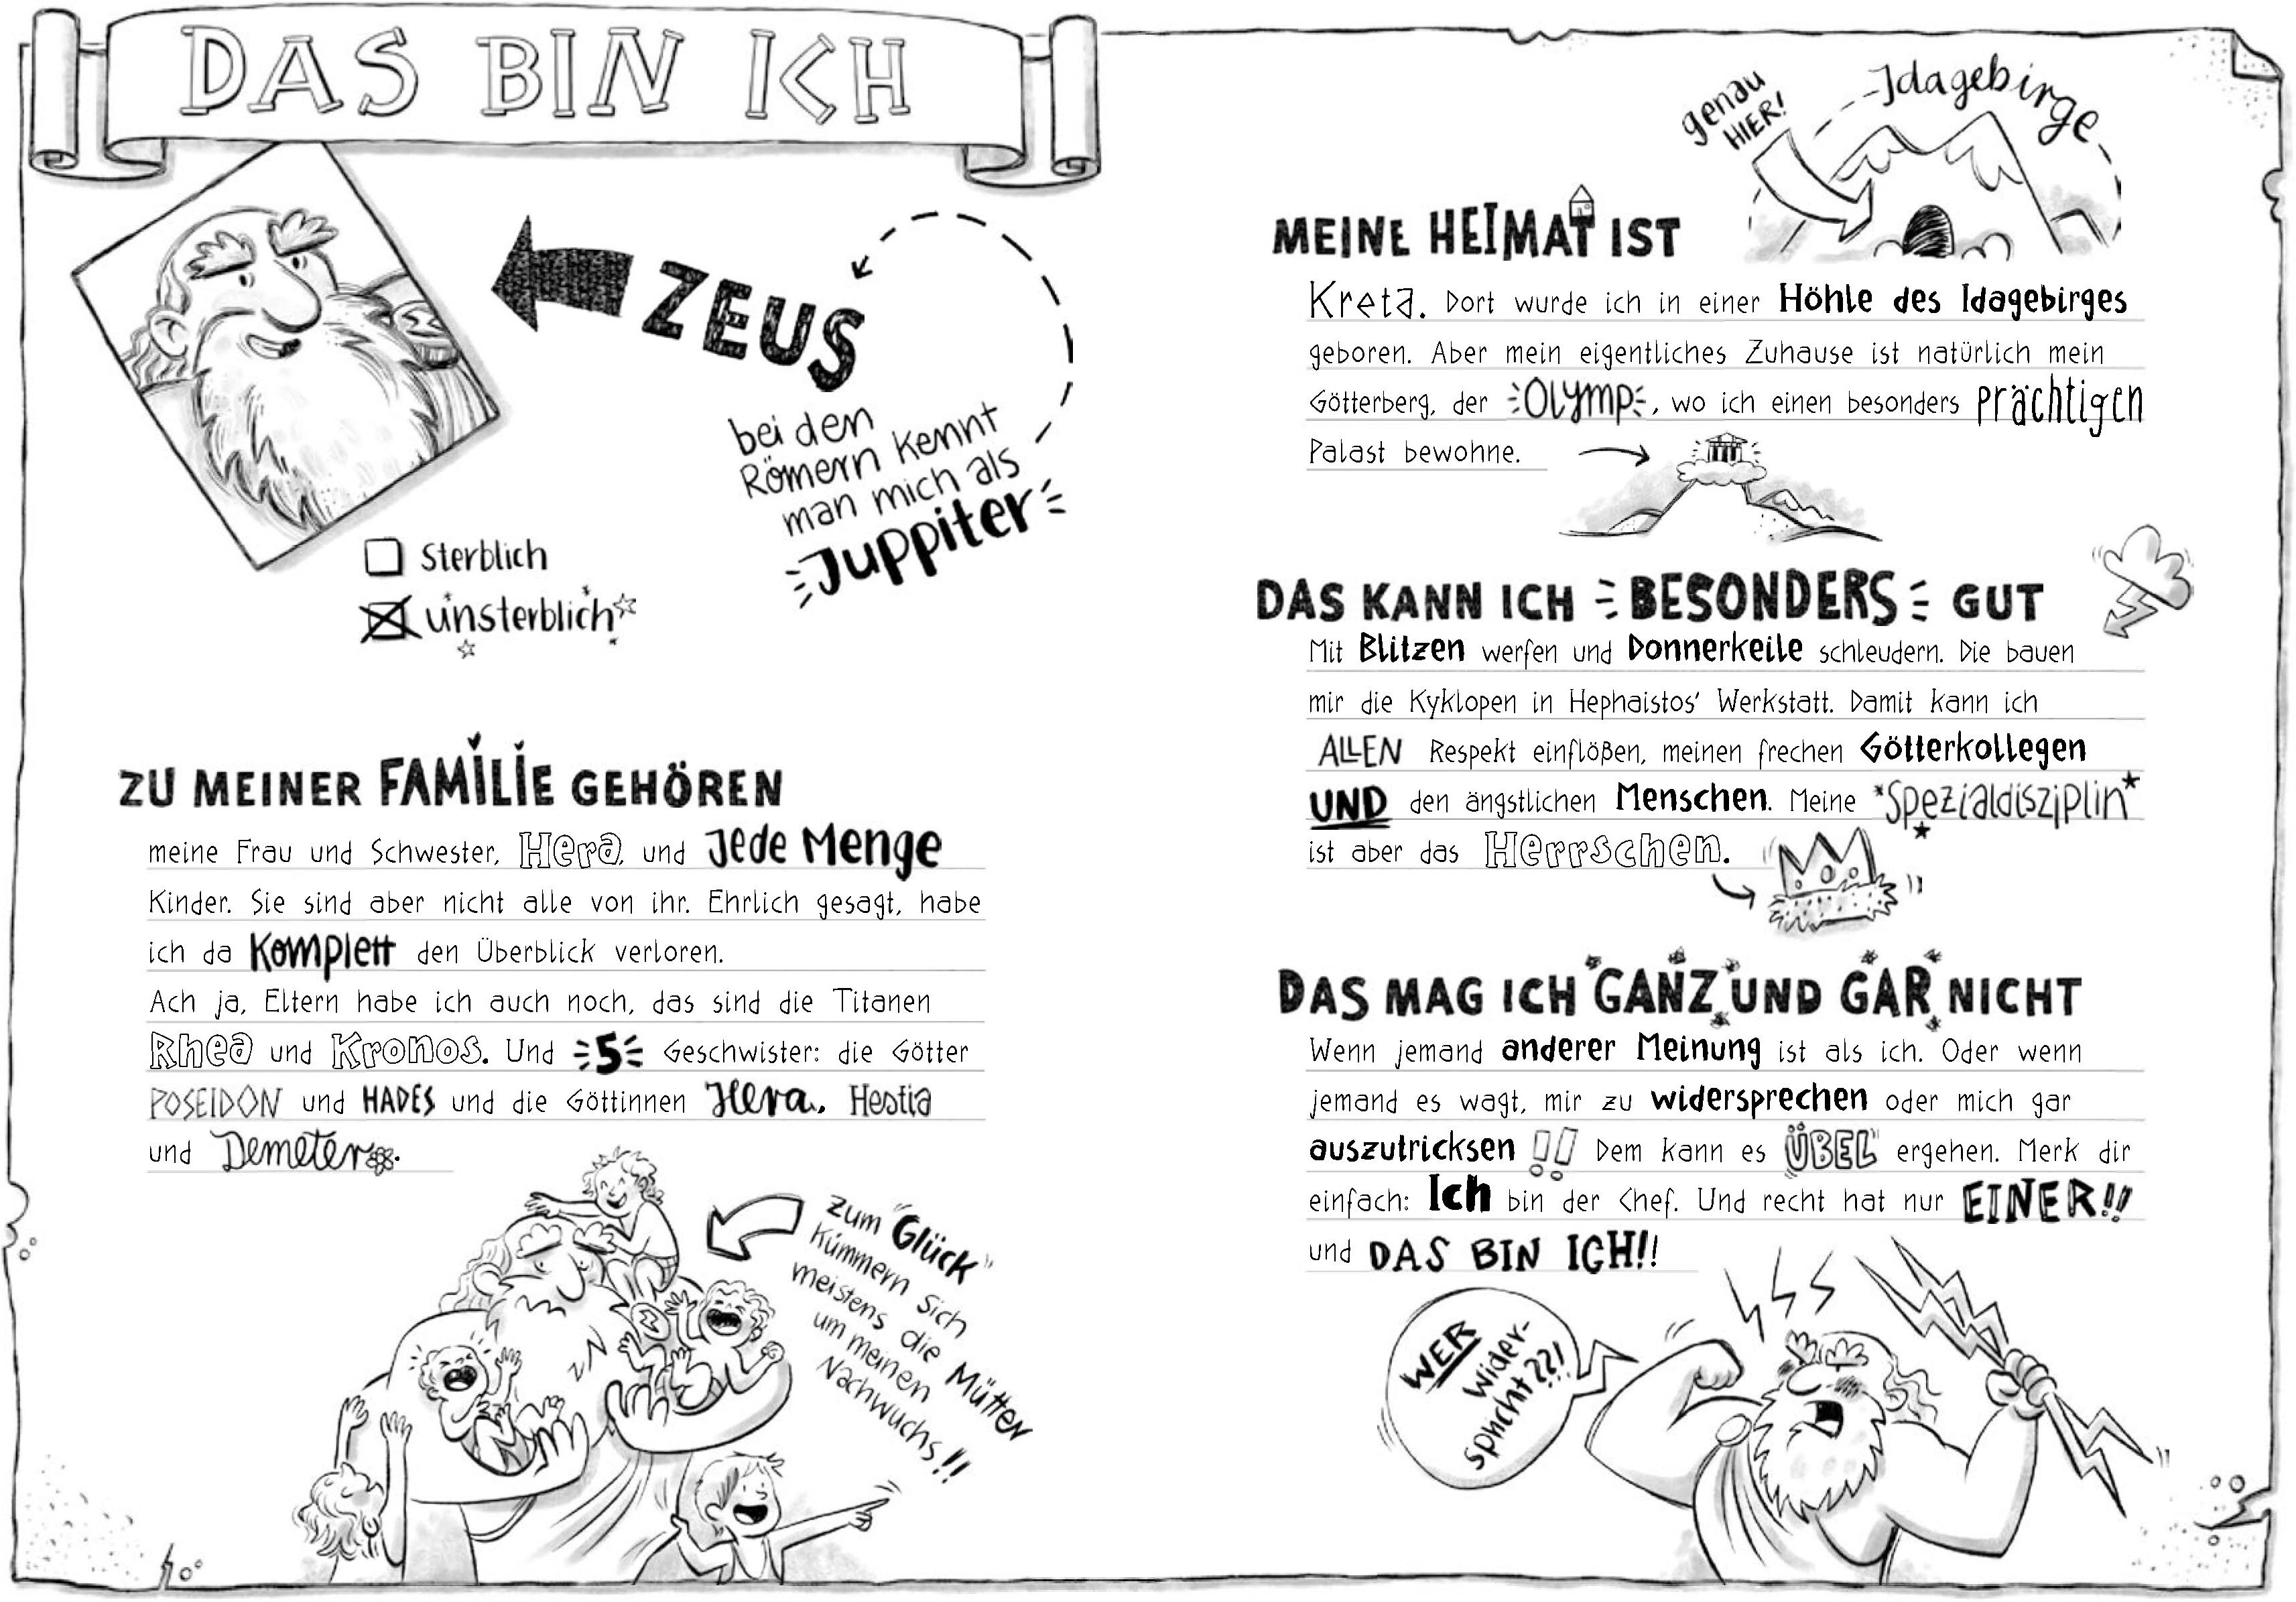 DAS BIN ICH
ZEUS
bei den
Römern kennt
man mich als
Juppiter
sterblich
unsterblich
ZU MEINER FAMILIE GEHÖREN
meine Frau und Schwester, Hera, und jede Menge
Kinder. Sie sind aber nicht alle von ihr. Ehrlich gesagt, habe
ich da komplett den Überblick verloren.
Ach ja, Eltern habe ich auch noch, das sind die Titanen
Rhea und Kronos. Und 5 Geschwister: die Götter
POSEIDON und HADES und die Göttinnen Hera, Hestia
und Demeter.
Zum Glück
kümmern sich
meistens die Mütter
um meinen
Nachwuchs!!
genau
HIER!
Idagebirge
MEINE HEIMAT IST
Kreta. Dort wurde ich in einer Höhle des Idagebirges
geboren. Aber mein eigentliches Zuhause ist natürlich mein
Götterberg, der Olymp, wo ich einen besonders prächtigen
Palast bewohne.
DAS KANN ICH BESONDERS GUT
Mit Blitzen werfen und Donnerkeile schleudern. Die bauen
mir die Kyklopen in Hephaistos' Werkstatt. Damit kann ich
ALLEN Respekt einflößen, meinen frechen Götterkollegen
UND den ängstlichen Menschen. Meine *Spezialdisziplin*
ist aber das Herrschen.
DAS MAG ICH GANZ UND GAR NICHT
Wenn jemand anderer Meinung ist als ich. Oder wenn
jemand es wagt, mir zu widersprechen oder mich gar
auszutricksen!! Dem kann es ÜBEL ergehen. Merk dir
einfach: Ich bin der Chef. Und recht hat nur EINER!!
und DAS BIN ICH!!
WER
wider-
spricht??!